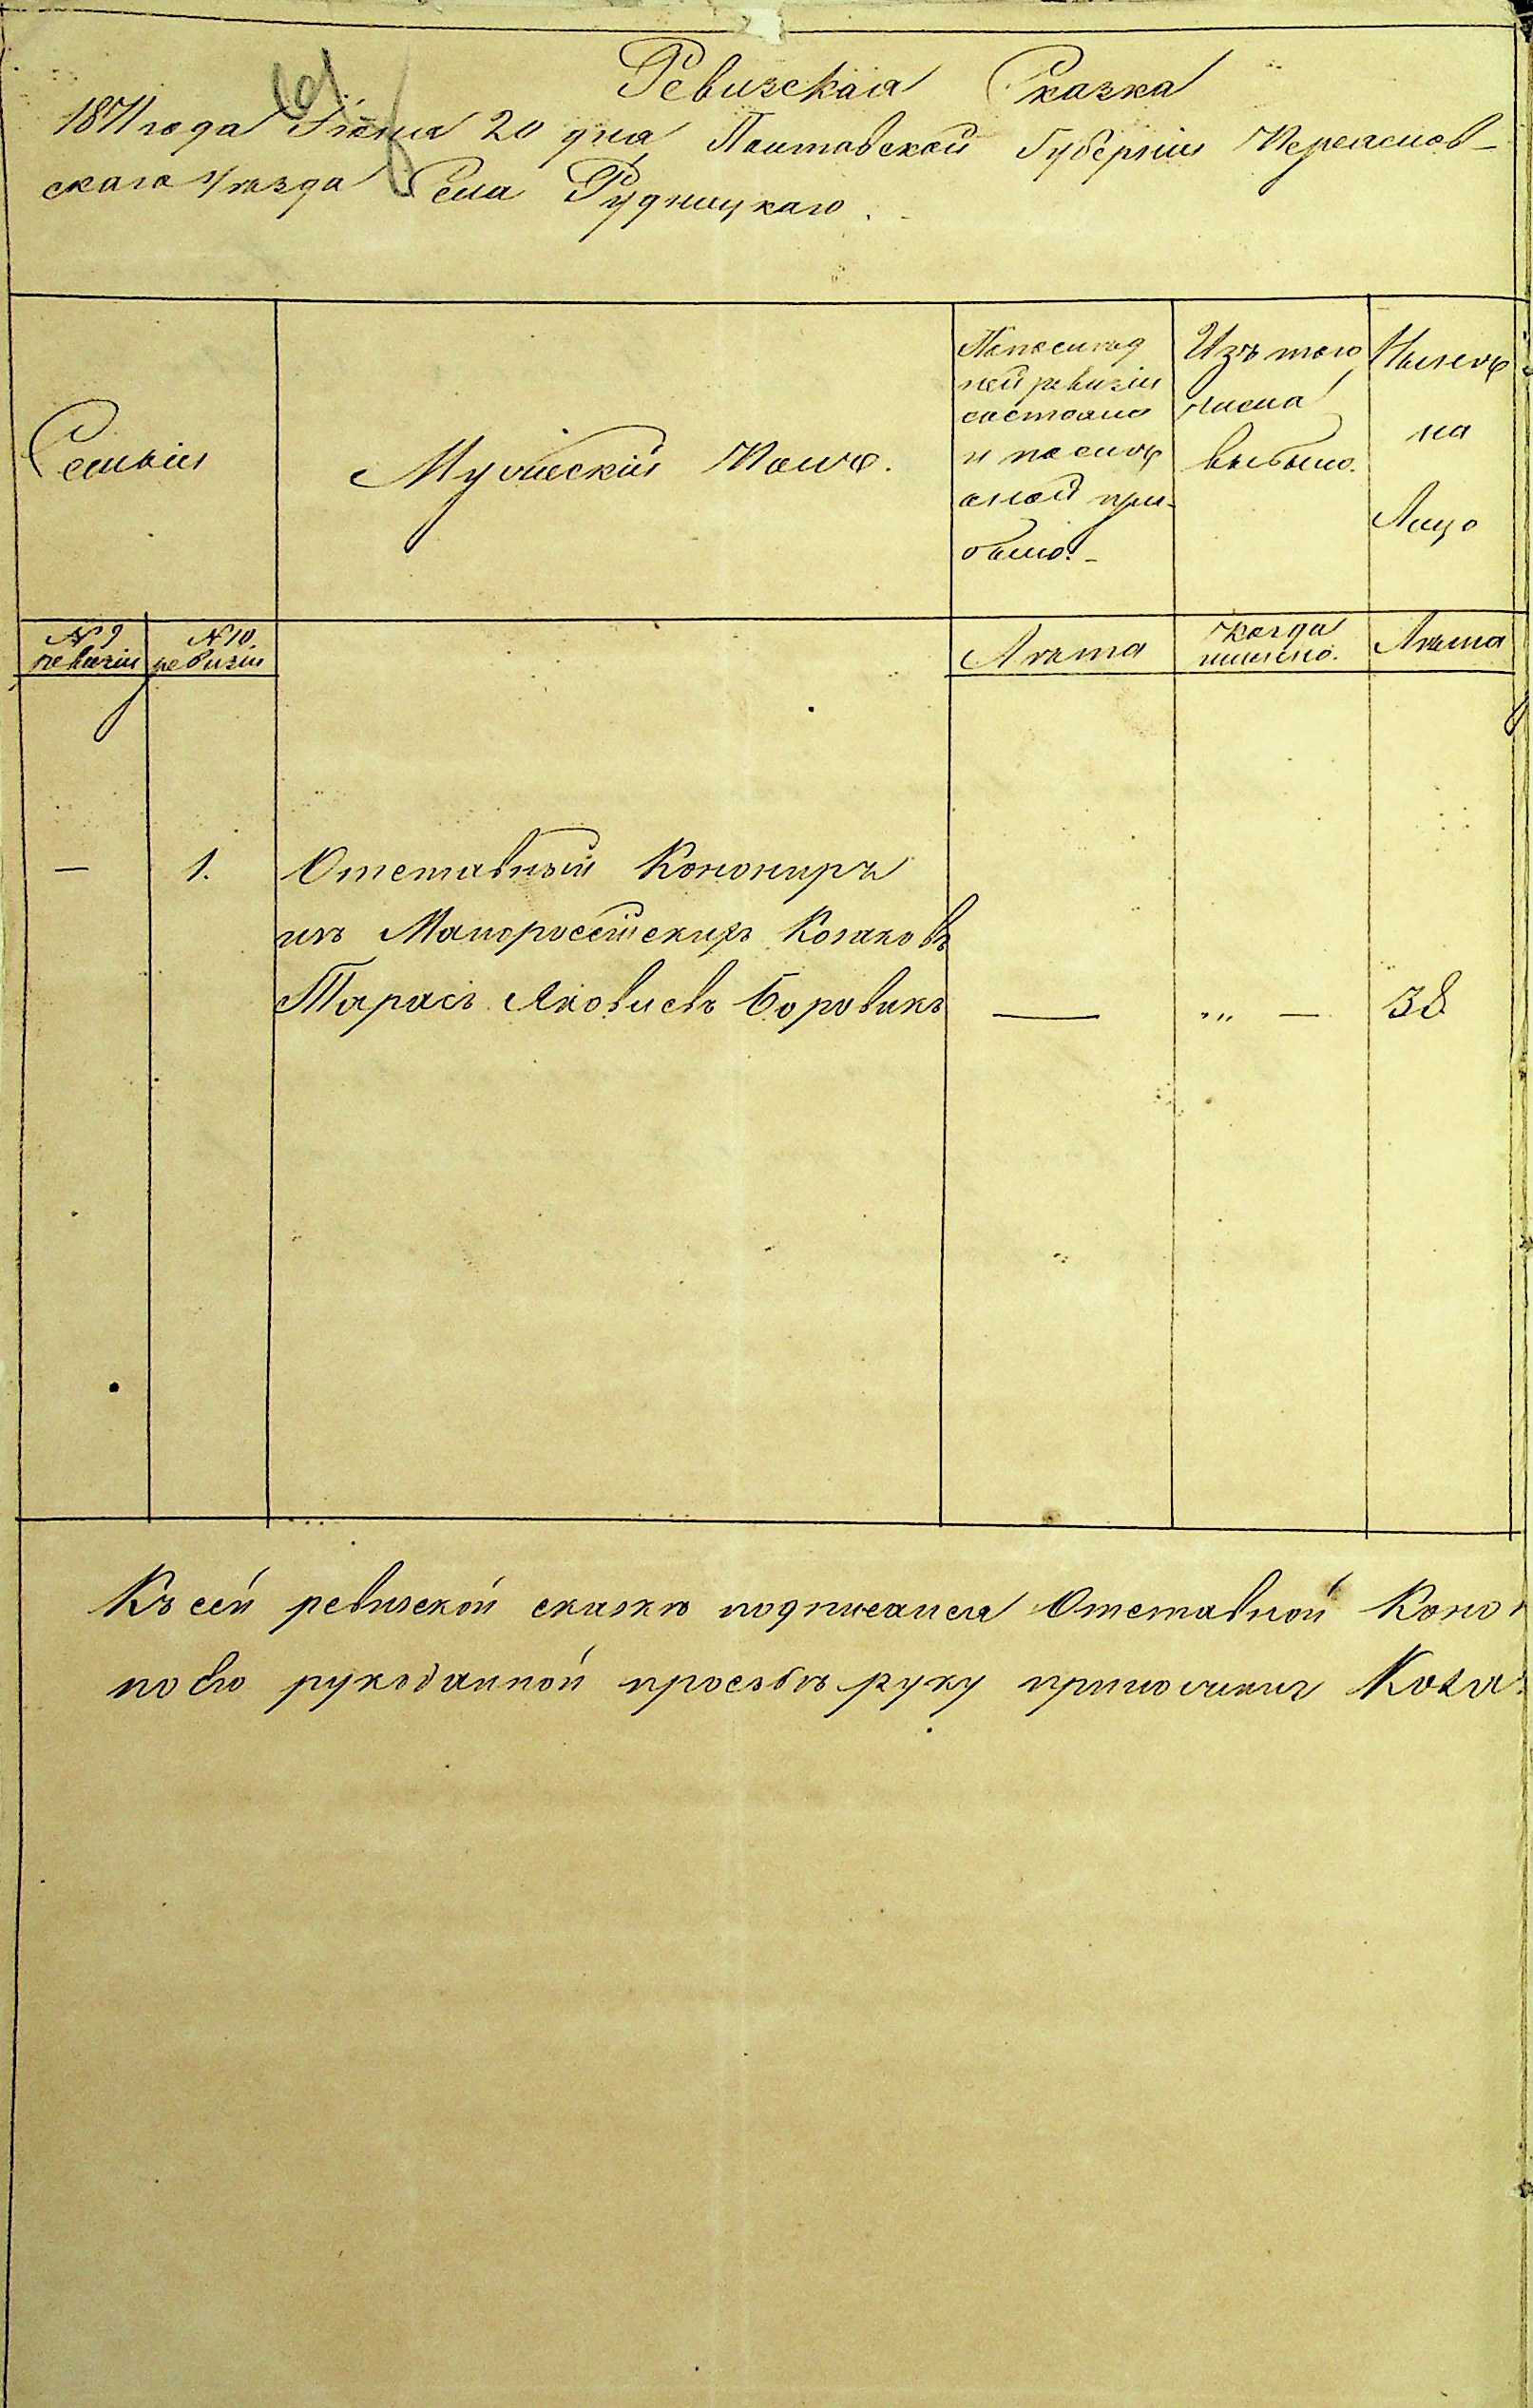 Ревизская Сказка
1871 года Іюня 20 дня Полтавской Губерніи Переяслов-
скаго Уѣзда Села Рудницкаго.
Семьи
Мужескій Полъ.
По послѣд
ней ревизіи
состояло
и послѣ
оной при-
было.
Изъ того
числа
выбыло.
Нынѣ
на
Лицо
№ 9 ревизіи
№ 10. ревизіи
Лѣта
Когда
именно.
Лѣта
— 1. Отставный Конониръ
изъ Малороссійскихъ Козаковъ
Тарасъ Яковлевъ Боровикъ — „ — 38
Къ сей ревизской сказкѣ подписался Отставной Коно
по его рукоданной просьбѣ руку приложилъ Коза